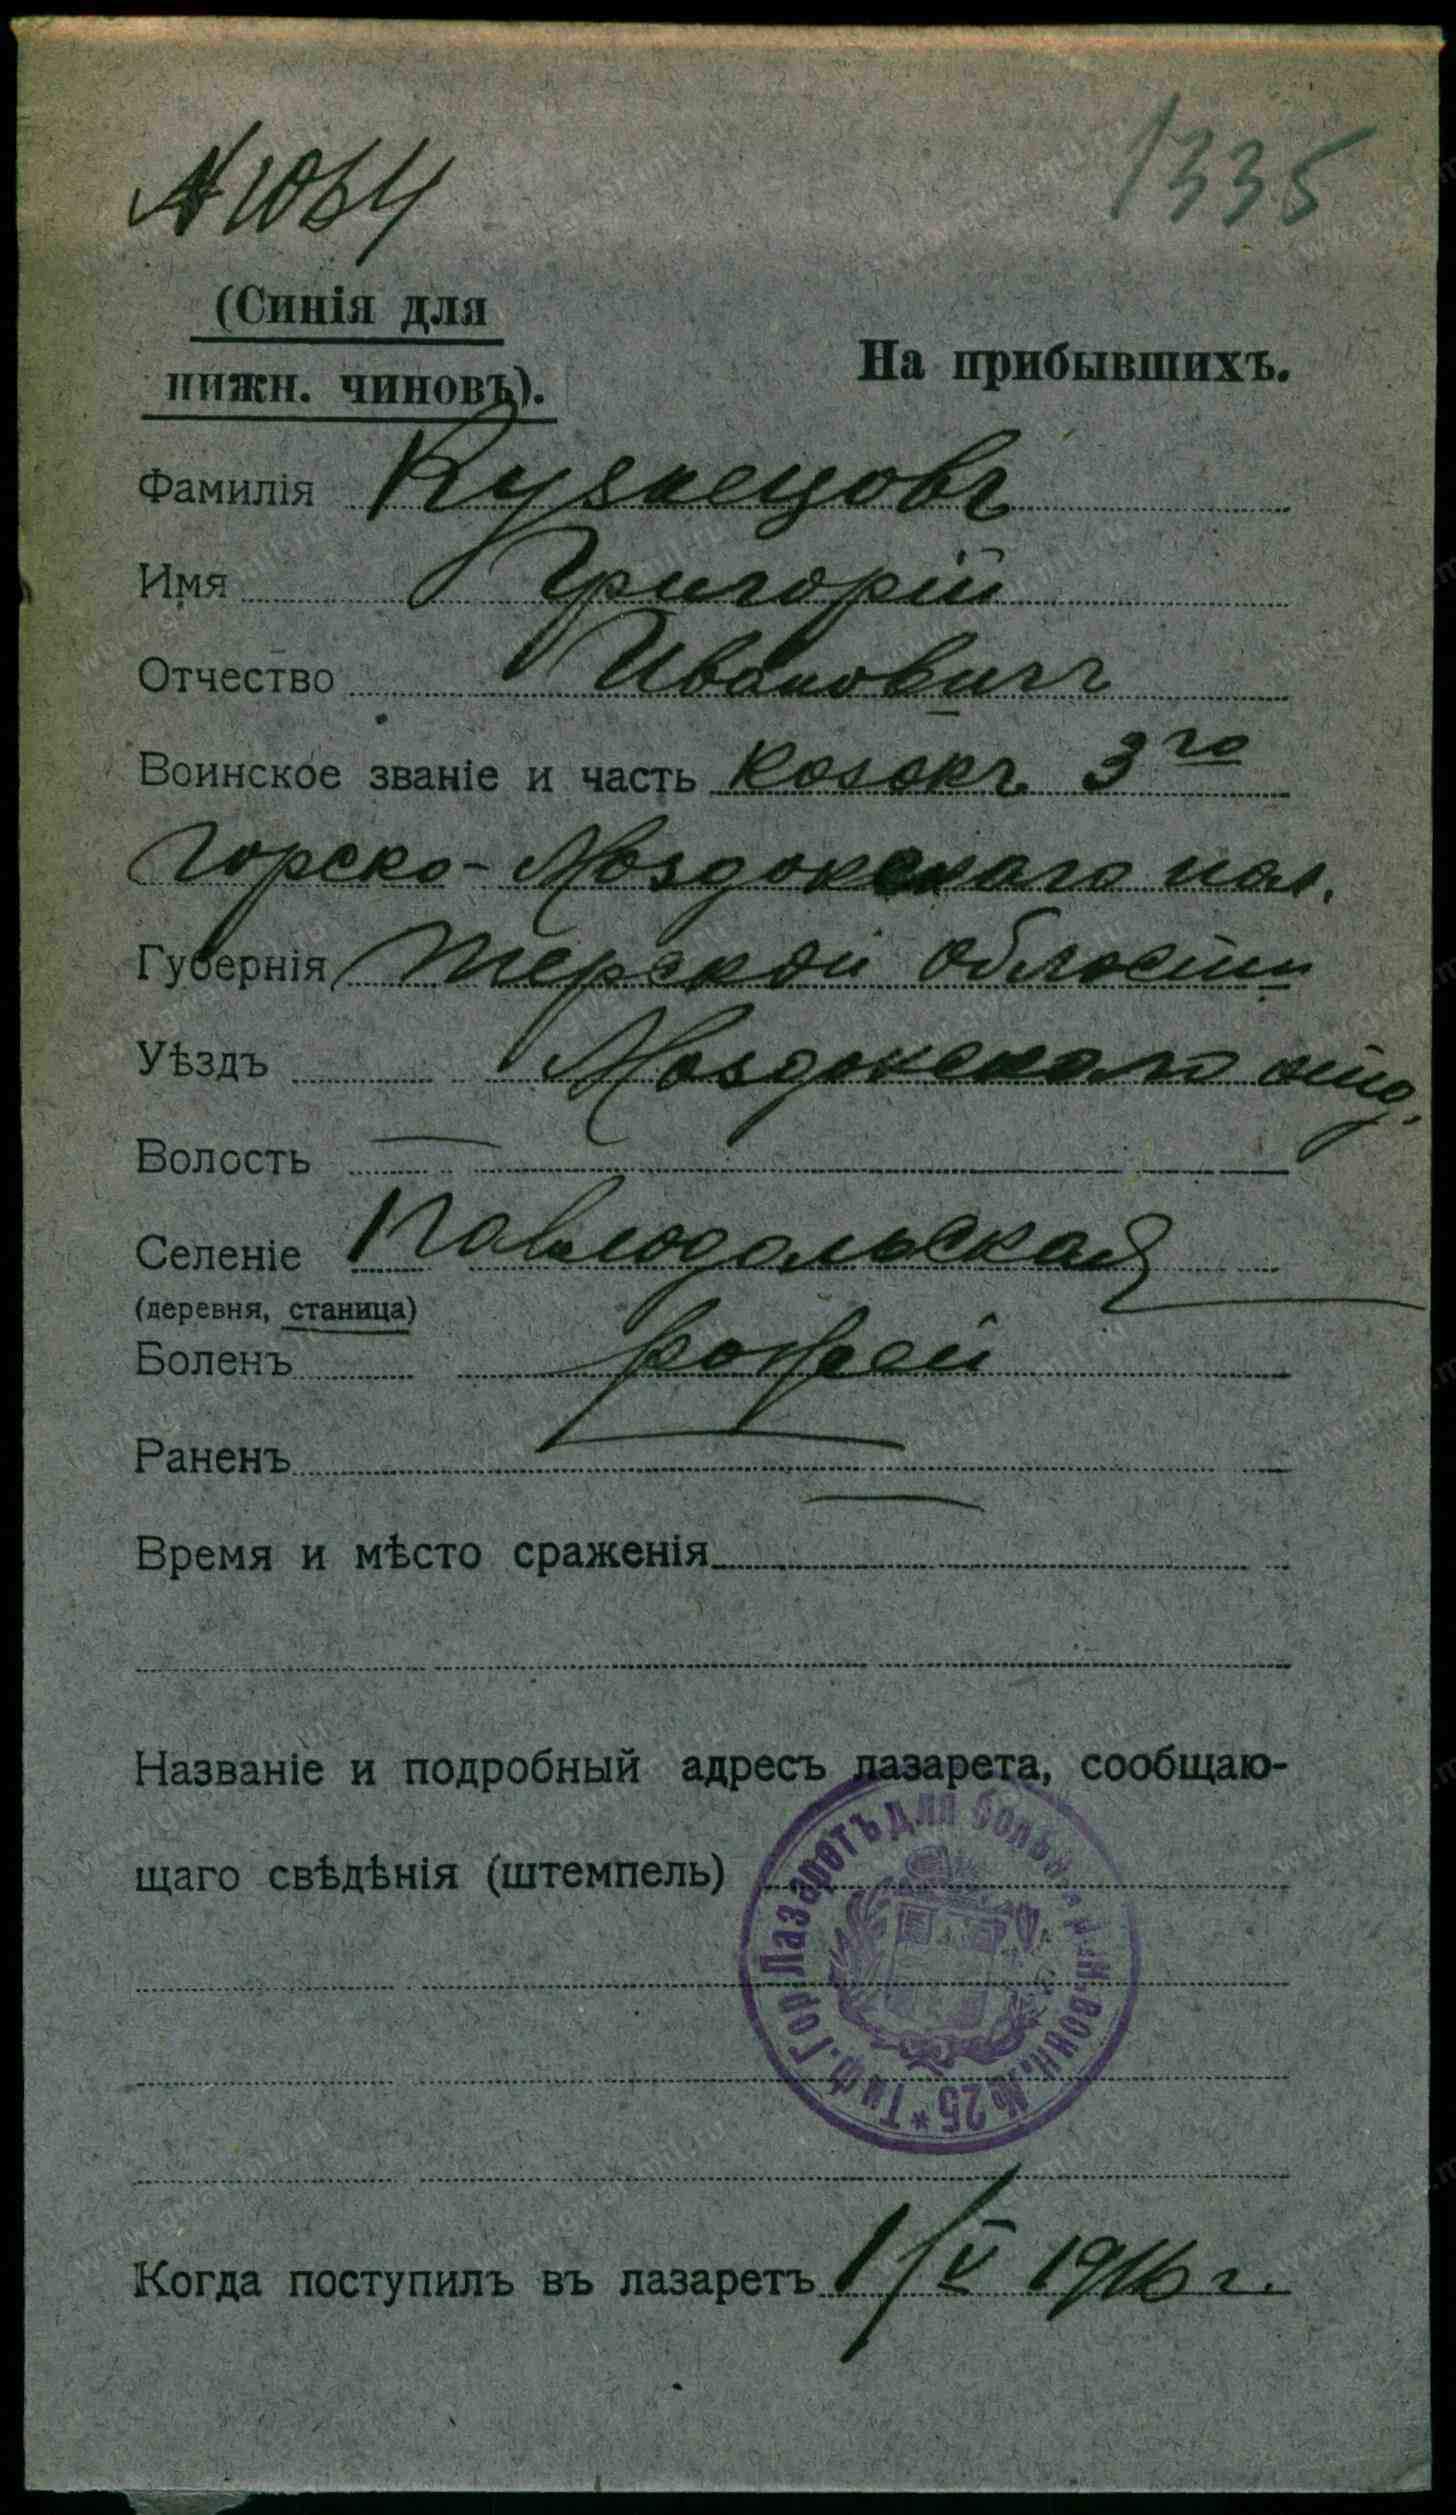 № 1064
1335
(Синія для
нижн. чиновъ).
На прибывшихъ.
Фамилія Кузнецовъ
Имя Григорій
Отчество Ивановичъ
Воинское званіе и часть козакъ 3го
Горско-Моздокскаго пол.
Губернія Терской области
Уѣздъ Моздокскаго отд.
Волость —
Селеніе Павлодольская
(деревня, станица)
Боленъ рожей
Раненъ
Время и мѣсто сраженія —
Названіе и подробный адресъ лазарета, сообщаю-
щаго свѣдѣнія (штемпель)
Тиф. Гор. Лазаретъ для больн. воин. № 25 *
Когда поступилъ въ лазаретъ 1/V 1916 г.
www.gwar.mil.ru